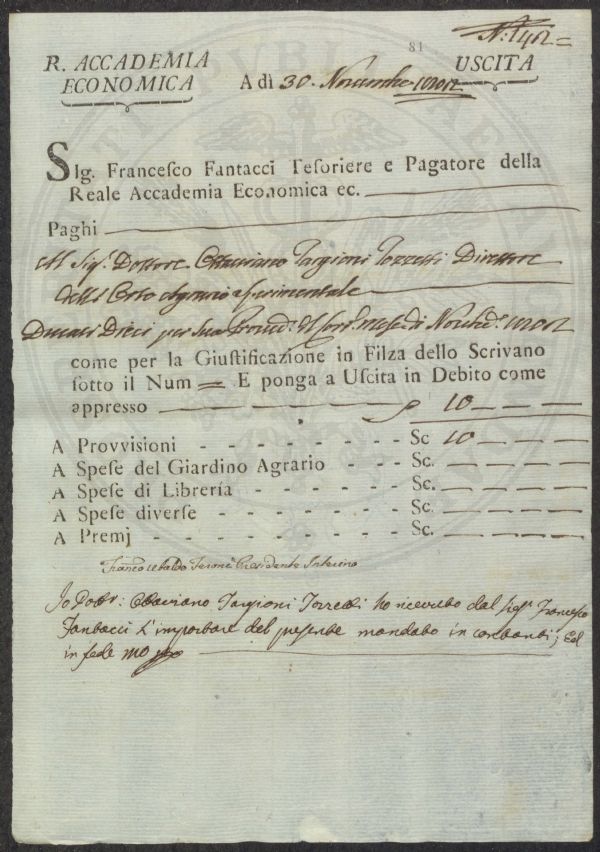 81
N.° 142 =
R. ACCADEMIA USCITA
ECONOMICA A dì 30. Novembre 1802
SIg. Francesco Fantacci Tesoriere e Pagatore della
Reale Accademia Economica ec.
Paghi
Al Sig.r Dottore Ottaviano Targioni Tozzetti Direttore
dell'Orto Agrario sperimentale
Ducati Dieci per sua Provvd.e mese di Novbe. 1802
come per la Giustificazione in Filza dello Scrivano
sotto il Num = E ponga a Uscita in Debito come
appresso 10
A Provvisioni - - - - - - - Sc 10
A Spese del Giardino Agrario - - - - Sc.
A Spese di Librería - - - - - - Sc.
A Spese diverse - - - - - - - Sc.
A Premj - - - - - - - - - Sc.
Franco Ubaldo Feroni Presidente Interino
Io Dottr: Ottaviano Targioni Tozzetti ho ricevuto dal Sigr. Francesco
Fantacci L'importare del presente mandato in contanti; Ed
in fede mo ppo